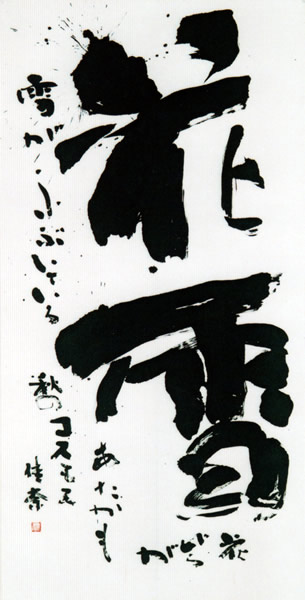 花雪
花びらが
あたかも
雪がふぶいている
秋の
コスモス